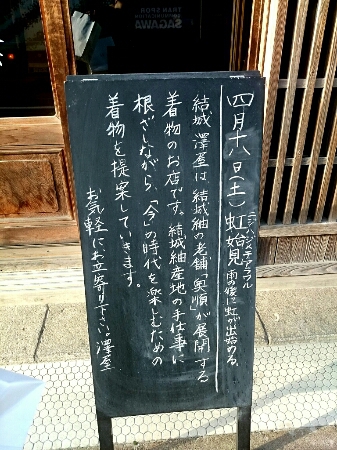 四月十八日(土) 虹始見 雨の後に虹が出始める。
ニジハジメテアラワル
結城 澤屋は 結城紬の老舗「奥順」が展開する
着物のお店です。結城紬産地の手仕事に
根ざしながら、「今」の時代を楽しむための
着物を提案していきます。
お気軽に、お立寄り下さい。澤屋
TRANSPOR
SAGAWA